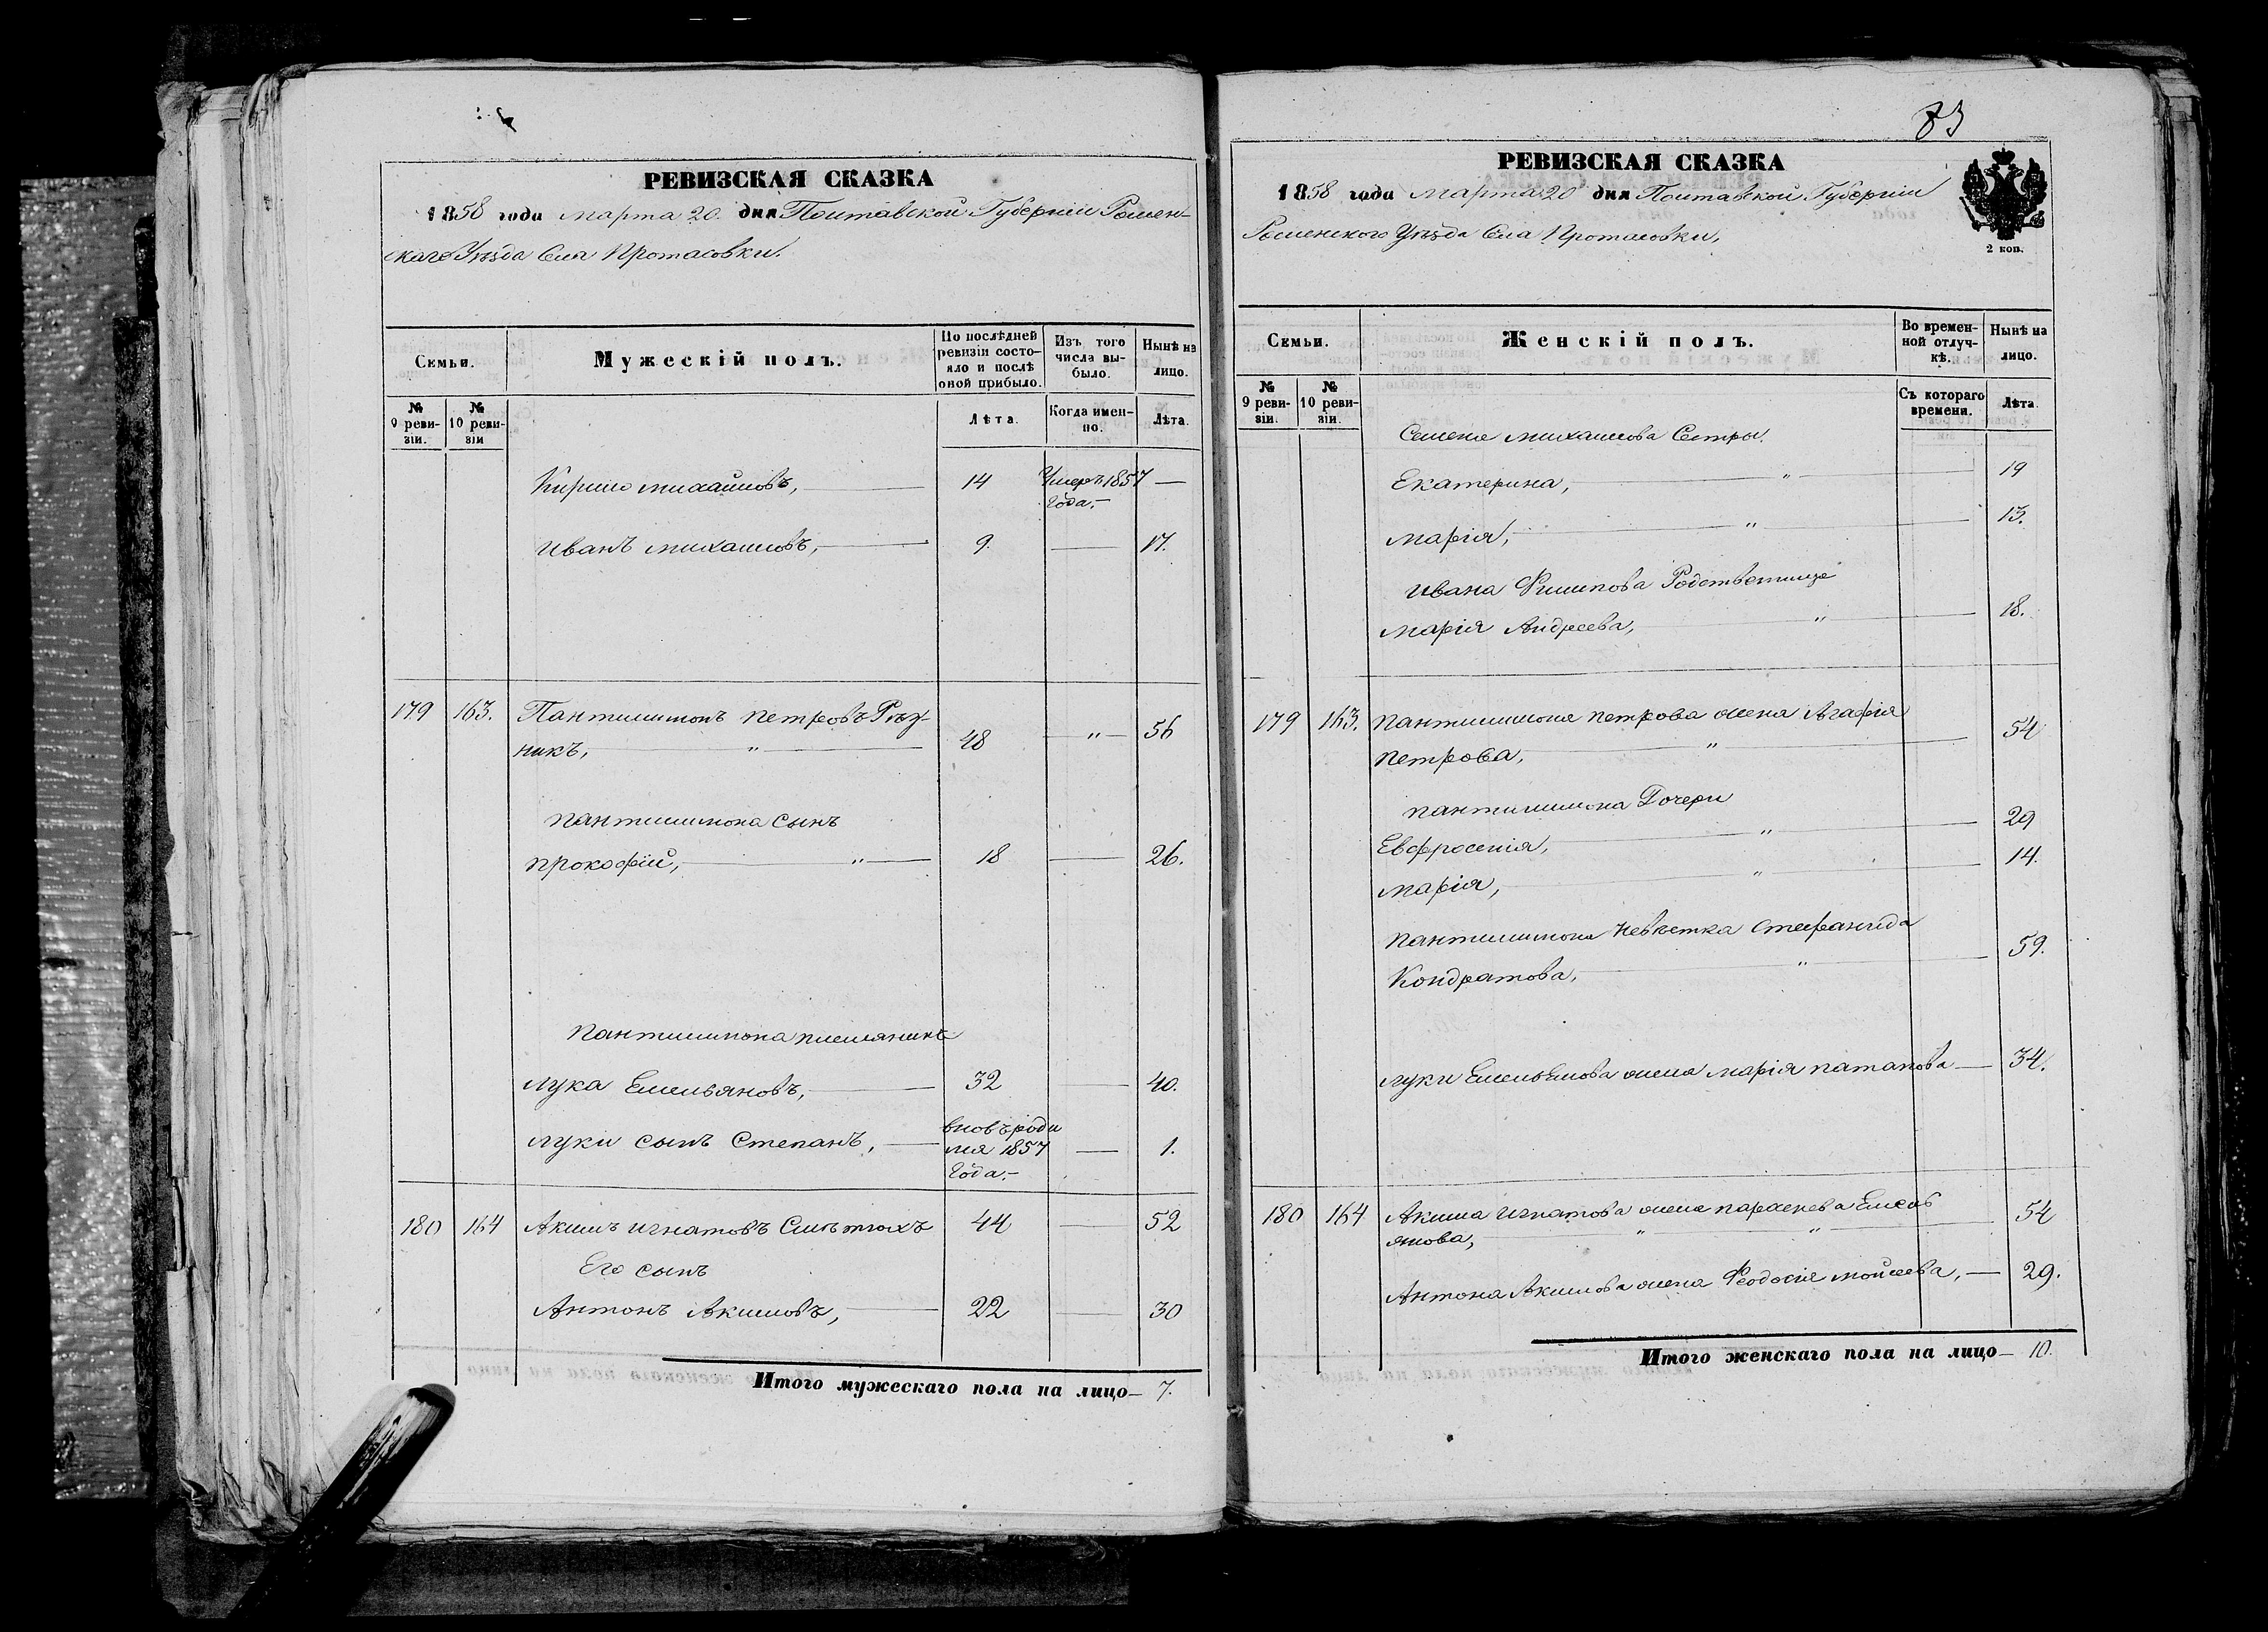 РЕВИЗСКАЯ СКАЗКА
1858 года марта 20 дня Полтавской Губерніи Ромен-
скаго Уѣзда Села Протасовки.
Семьи.
Мужескій полъ.
По послѣдней ревизіи состо-яло и послѣ оной прибыло.
Изъ того числа вы-было.
Нынѣ на лицо.
№ 9 реви-зіи.
№ 10 реви-зіи
Лѣта.
Когда имен-но.
Лѣта.
Кирило михайловъ, 14 Умеръ 1857 —
года.
иванъ михаиловъ, 9. — 17.
179 163. Пантилимонъ петровъ Рѣз-
никъ, " 48 " 56
пантилимона сынъ
прокофій, " 18 — 26.
пантилимона племянникъ
лука Емельяновъ, 32 — 40.
луки сынъ Степанъ, вновь роди
лся 1857 — 1.
года.
180 164 Акимъ игнатовъ 44 — 52
Его сынъ
Антонъ Акимовъ, 22 — 30
Итого мужескаго пола на лицо — 7.
83
РЕВИЗСКАЯ СКАЗКА
1858 года марта 20 дня Полтавской Губерніи
Роменского Уѣзда Села Протасовки,
2 коп.
Семьи.
Женскій полъ.
Во времен-ной отлуч-кѣ.
Нынѣ на лицо.
№ 9 реви-зіи.
№ 10 реви-зіи.
Съ котораго времени.
Лѣта.
Семена михаилова Сестры.
Екатерина, " 19
марія, " 13.
ивана Филипова Родственница
марія Андреева, " 18.
179 163. пантилимона петрова жена Агафія
петрова, " 54
пантилимона Дочери
Евфросенія, " 29
марія, " 14.
пантилимона невѣстка стефанида
Кондратова, " 59.
луки Емельянова жена марія патапова — 34.
180 164 Акима игнатова жена параскева Емель
янова, " " 54
Антона Акимова жена Феодосія мойсеева, — 29.
Итого женскаго пола на лицо — 10.